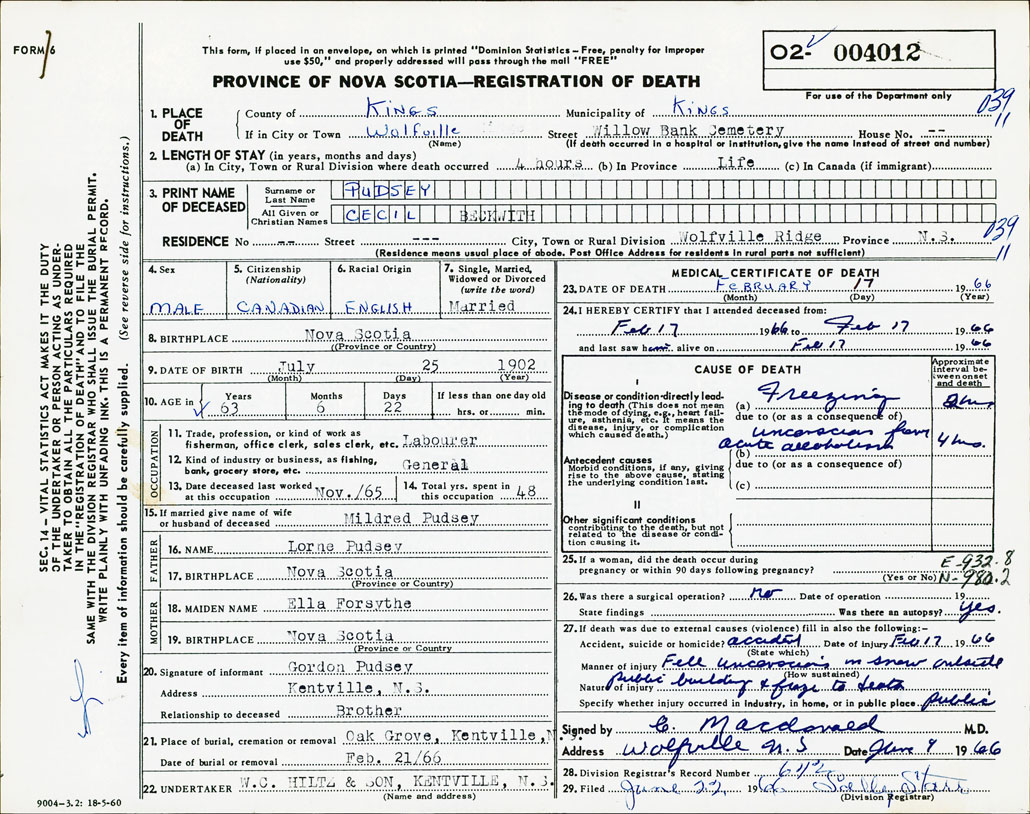 FORM 6
This form, if placed in an envelope, on which is printed "Dominion Statistics – Free, penalty for improper
use $50," and properly addressed will pass through the mail "FREE"
PROVINCE OF NOVA SCOTIA—REGISTRATION OF DEATH
O2- 004012
For use of the Department only
039
11
1. PLACE OF DEATH
County of KINGS Municipality of KINGS
If in City or Town Wolfville Street Willow Bank Cemetery House No. --
(Name) (If death occurred in a hospital or institution, give the name instead of street and number)
2. LENGTH OF STAY (in years, months and days)
(a) In City, Town or Rural Division where death occurred 4 hours (b) In Province Life (c) In Canada (if immigrant)
3. PRINT NAME OF DECEASED
Surname or Last Name PUDSEY
All Given or Christian Names CECIL BECKWITH
039
11
RESIDENCE No -- Street --- City, Town or Rural Division Wolfville Ridge Province N.S.
(Residence means usual place of abode. Post Office Address for residents in rural parts not sufficient)
4. Sex
MALE
5. Citizenship (Nationality)
CANADIAN
6. Racial Origin
ENGLISH
7. Single, Married, Widowed or Divorced (write the word)
Married
8. BIRTHPLACE Nova Scotia
(Province or Country)
9. DATE OF BIRTH July 25 1902
(Month) (Day) (Year)
10. AGE in Years Months Days If less than one day old
63 6 22 hrs. or min.
OCCUPATION
11. Trade, profession, or kind of work as
fisherman, office clerk, sales clerk, etc. Labourer
12. Kind of industry or business, as fishing,
bank, grocery store, etc. General
13. Date deceased last worked
at this occupation Nov./65
14. Total yrs. spent
in this occupation 48
15. If married give name of wife
or husband of deceased Mildred Pudsey
FATHER
16. NAME Lorne Pudsey
17. BIRTHPLACE Nova Scotia
(Province or Country)
MOTHER
18. MAIDEN NAME Ella Forsythe
19. BIRTHPLACE Nova Scotia
(Province or Country)
20. Signature of informant Gordon Pudsey
Address Kentville, N.S.
Relationship to deceased Brother
21. Place of burial, cremation or removal Oak Grove, Kentville, N.S.
Date of burial or removal Feb. 21/66
22. UNDERTAKER W.C. HILTZ & SON, KENTVILLE, N.S.
(Name and address)
9004–3.2: 18-5-60
MEDICAL CERTIFICATE OF DEATH
23. DATE OF DEATH FEBRUARY 17 1966
(Month) (Day) (Year)
24. I HEREBY CERTIFY that I attended deceased from:
Feb 17 1966 to Feb 17 1966
and last saw him alive on Feb 17 1966
CAUSE OF DEATH
Approximate interval between onset and death
I
Disease or condition directly leading to death (This does not mean
the mode of dying, e.g., heart failure, asthenia, etc. It means the
disease, injury, or complication
which caused death.)
(a) Freezing 2 hrs
due to (or as a consequence of)
unconscious from
acute alcoholism 4 hrs.
(b)
due to (or as a consequence of)
(c)
Antecedent causes
Morbid conditions, if any, giving
rise to the above cause, stating
the underlying condition last.
II
Other significant conditions
contributing to the death, but not
related to the disease or condition causing it.
25. If a woman, did the death occur during
pregnancy or within 90 days following pregnancy?
(Yes or No)
E-932.8
N-980.2
26. Was there a surgical operation? no Date of operation 19
State findings Was there an autopsy? yes.
27. If death was due to external causes (violence) fill in also the following:–
Accident, suicide or homicide? accident Date of injury Feb 17 1966
(State which)
Manner of injury Fell unconscious in snow outside
(How sustained)
Nature of injury public building & froze to death
Specify whether injury occurred in industry, in home, or in public place public
Signed by C. Macdonald M.D.
Address Wolfville N.S Date June 9 1966
28. Division Registrar's Record Number 642
29. Filed June 22 1966
(Division Registrar)
SEC. 14 – VITAL STATISTICS ACT MAKES IT THE DUTY
OF THE UNDERTAKER OR PERSON ACTING AS UNDERTAKER TO OBTAIN ALL THE PARTICULARS REQUIRED
IN THE "REGISTRATION OF DEATH" AND TO FILE THE
SAME WITH THE DIVISION REGISTRAR WHO SHALL ISSUE THE BURIAL PERMIT.
WRITE PLAINLY WITH UNFADING INK. THIS IS A PERMANENT RECORD.
Every item of information should be carefully supplied. (See reverse side for instructions.)